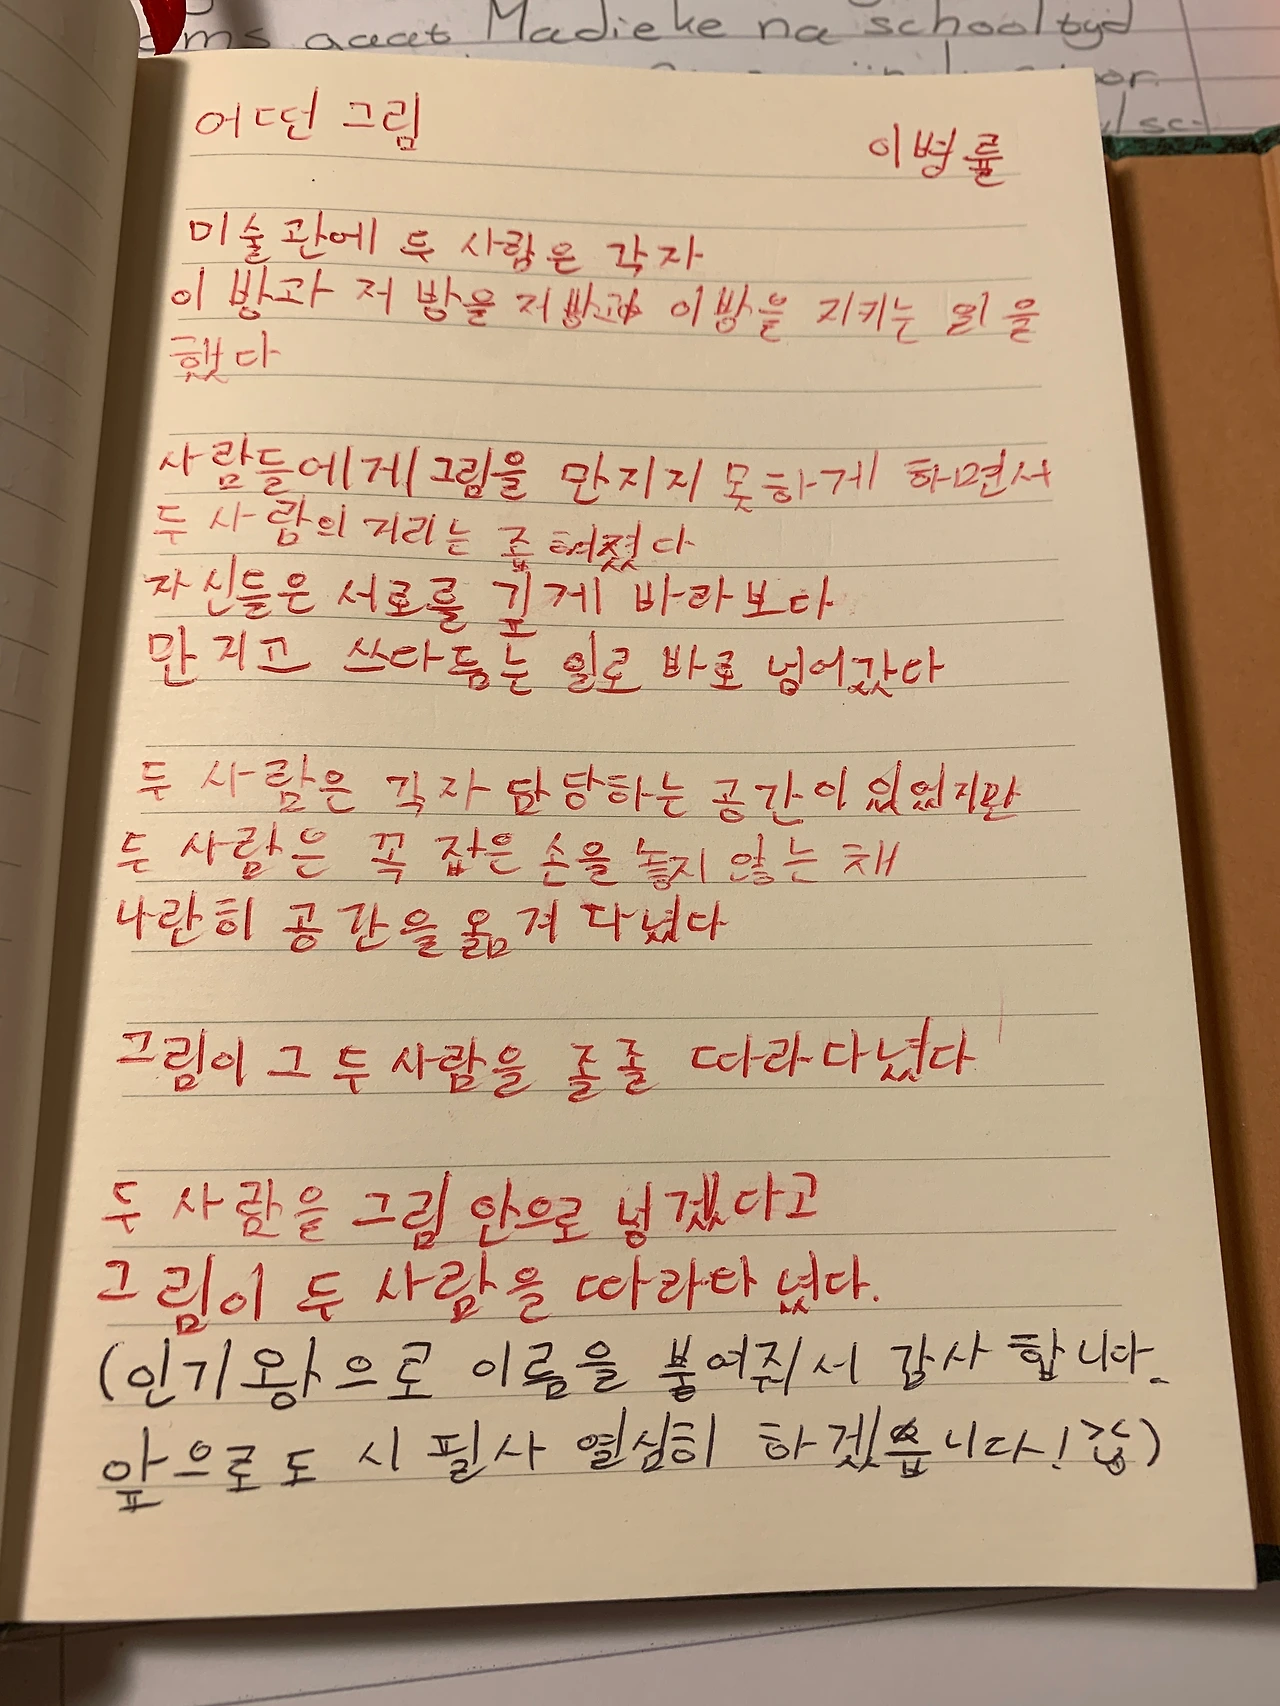 ms gaat Madieke na schooltyd
어떤 그림
이병률
미술관에 두 사람은 각자
이 방과 저 방을 저 방과 이 방을 지키는 일을
했다
사람들에게 그림을 만지지 못하게 하면서
두 사람의 거리는 좁혀졌다
자신들은 서로를 깊게 바라보다
만지고 쓰다듬는 일로 바로 넘어갔다
두 사람은 각자 담당하는 공간이 있었지만
두 사람은 꼭 잡은 손을 놓지 않는 채
나란히 공간을 옮겨 다녔다
그림이 그 두 사람을 졸졸 따라다녔다
두 사람을 그림 안으로 넣겠다고
그림이 두 사람을 따라다녔다.
(인기왕으로 이름을 붙여줘서 감사 합니다.
앞으로도 시 필사 열심히 하겠습니다!)